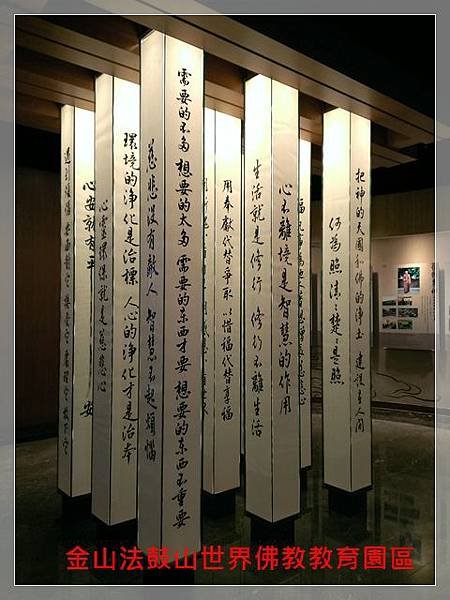 遇到任何事 要面對它 接受它 處理它 放下它
心安就有平安
心靈環保就是慈悲心
環境的淨化是治標 人心的淨化才是治本
慈悲沒有敵人 智慧不起煩惱
需要的不多 想要的太多 需要的东西才要 想要的东西不重要
用奉獻代替爭取 以惜福代替享福
生活就是修行 修行不離生活
心不離境是智慧的作用
何為照 清清楚楚是照
把神的天國和佛的淨土 建設在人間
金山法鼓山世界佛教教育園區